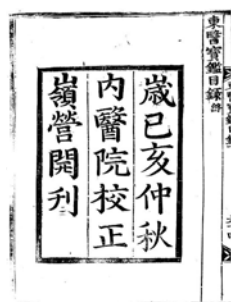 東醫寶鑑目錄
歲己亥仲秋
內醫院校正
嶺營開刊